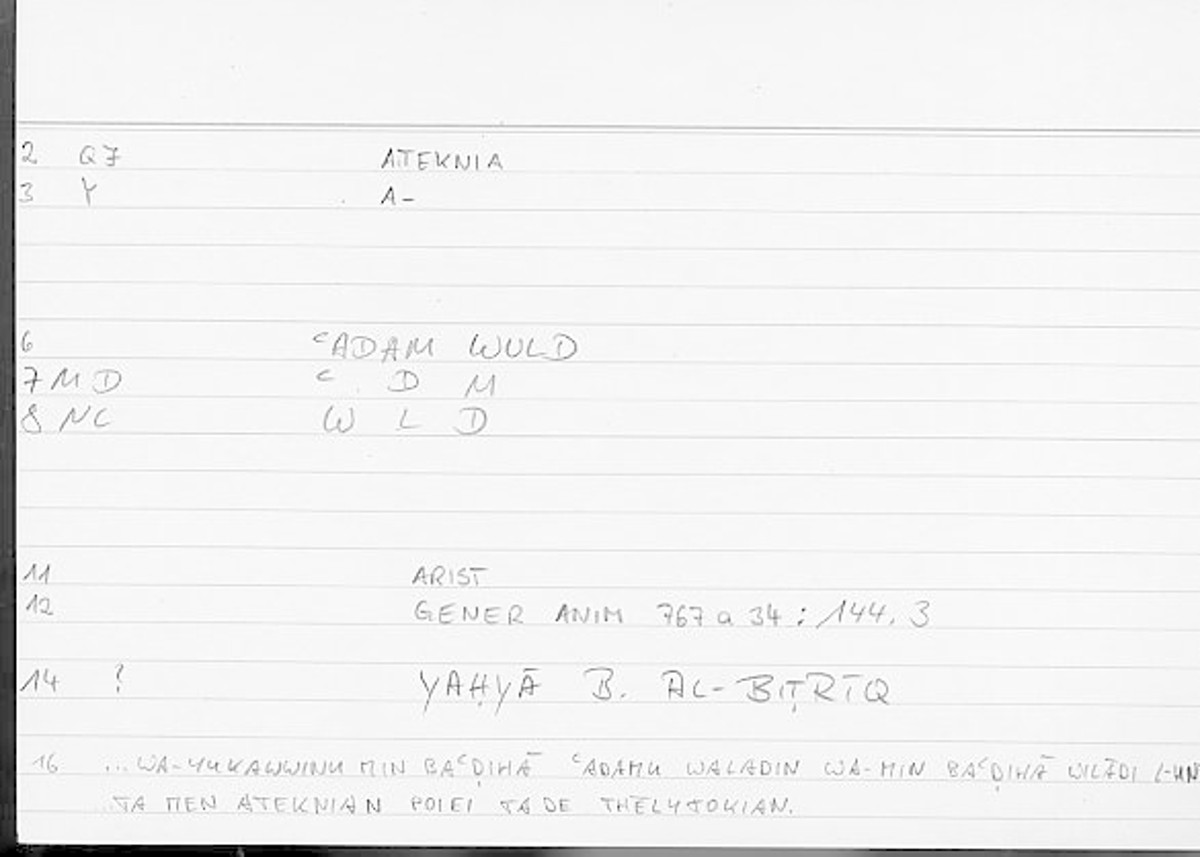 2 Q7 ATEKNIA
3 Y A-
6 ʿADAM WULD
7 MD ʿ D M
8 NC W L D
11 ARIST
12 GENER ANIM 767 a 34 : 144.3
14 ? YAḤYĀ B. AL-BIṬRĪQ
16 ...WA-YUKAWWINU MIN BAʿḌIHĀ ʿADAMU WALADIN WA-MIN BAʿḌIHĀ WILĀDI L-UN
TA MEN ATEKNIAN POIEI TA DE THĒLYTOKIAN.